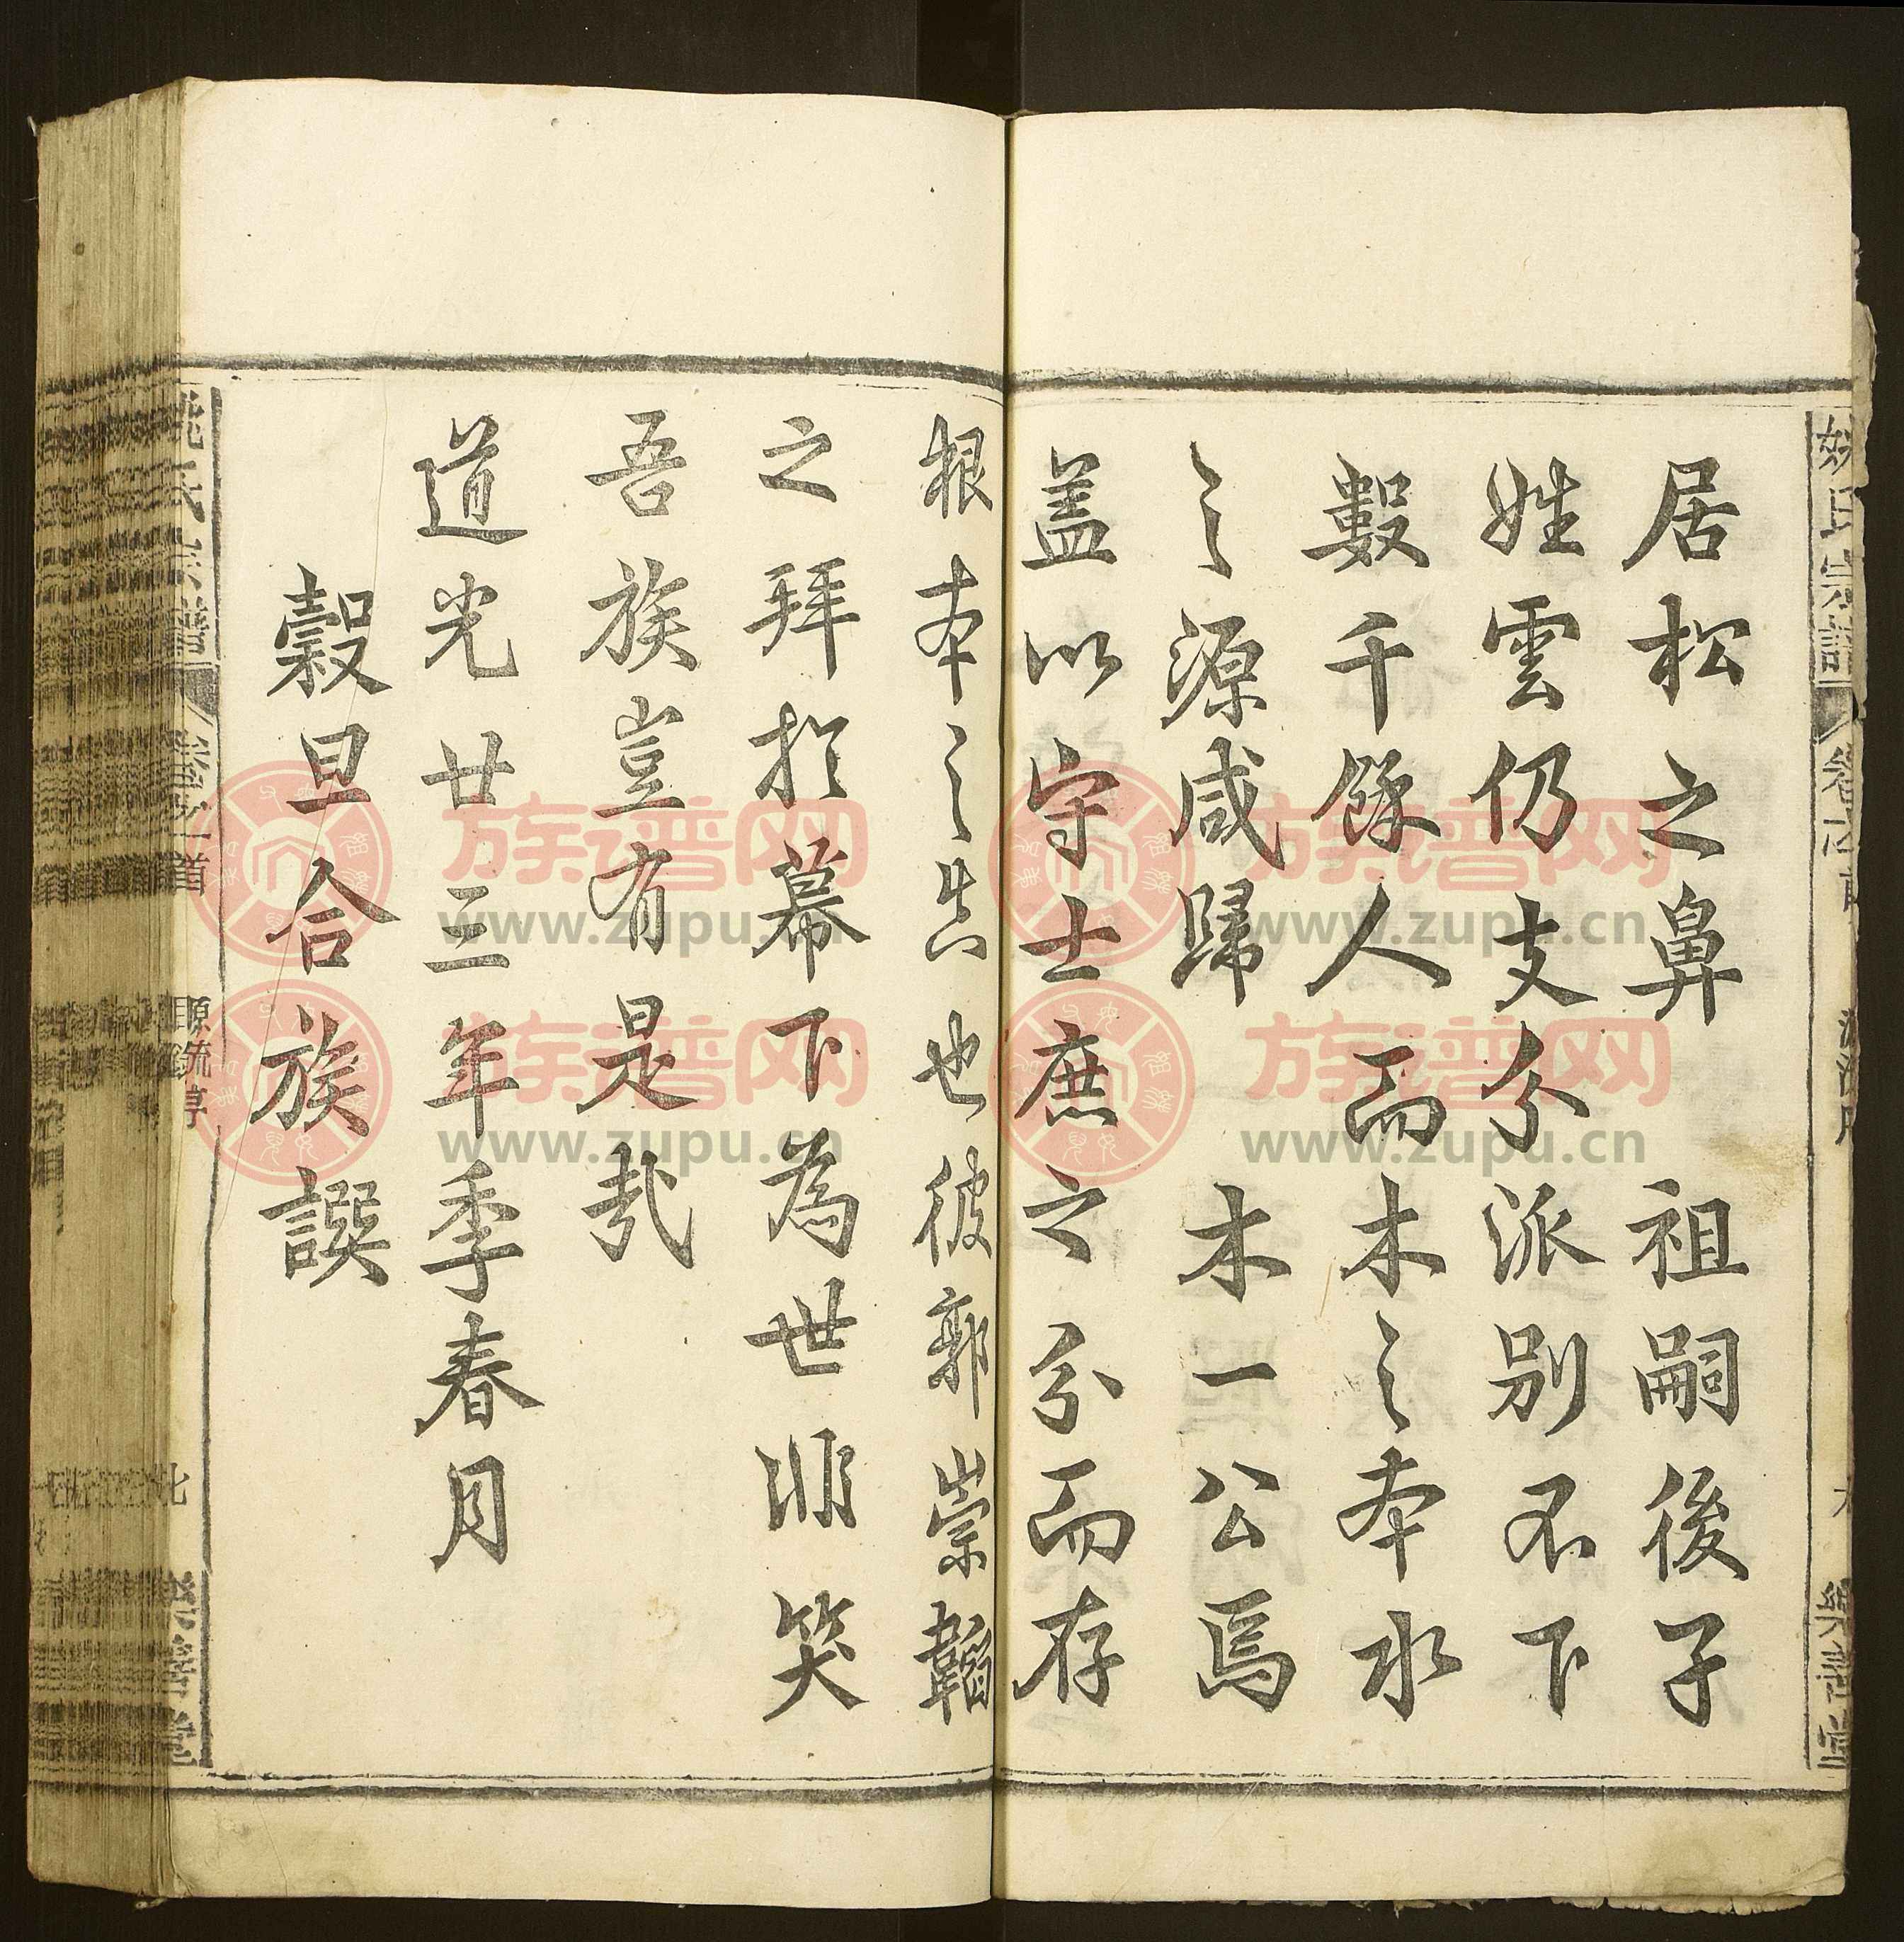 居松之鼻祖嗣後子
姓雲仍支分派別不下
數千餘人而木之本水
之源咸歸木一公焉
盖以守士庶之分而存
根本之真也彼郭崇韜
之拜於墓下為世非笑
吾族豈有是哉
道光廿三年季春月
穀旦合族譔
姚氏宗譜
卷之首
源流序
姚氏宗譜
卷之首
源流序
族谱网
www.zupu.cn
族谱网
www.zupu.cn
族谱网
www.zupu.cn
族谱网
www.zupu.cn